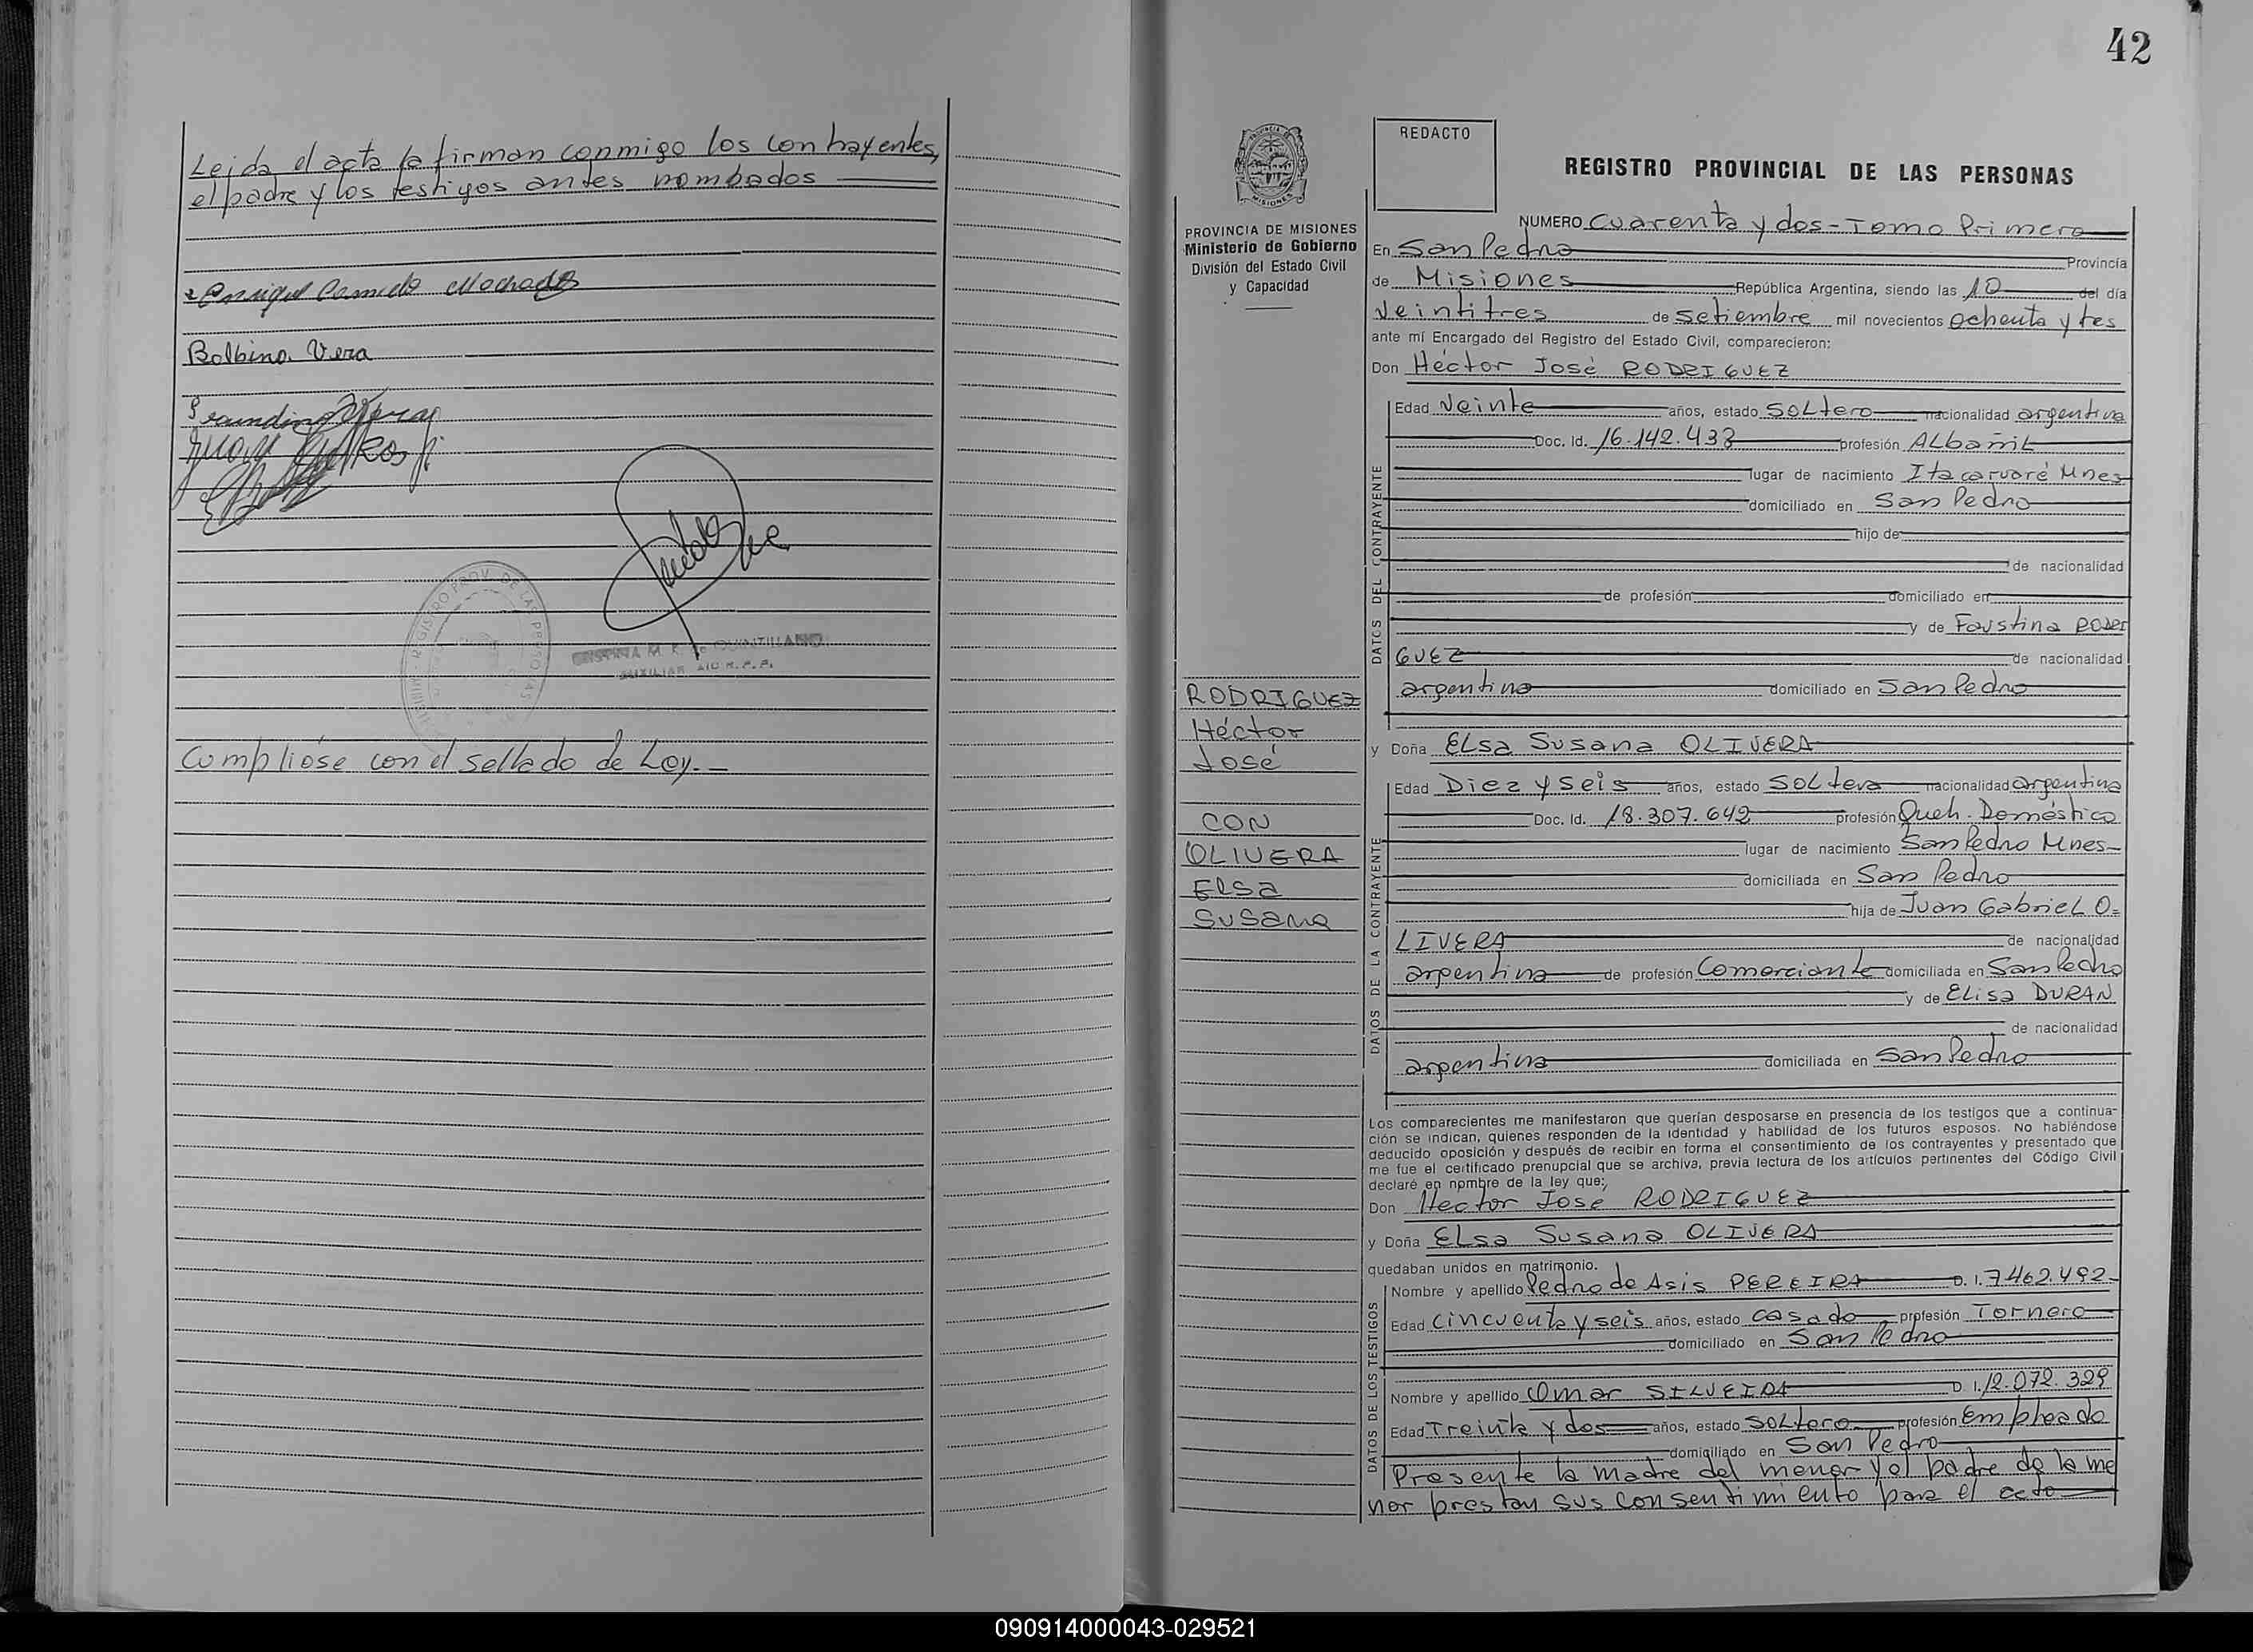 Leida el acta la firman conmigo los contrayentes,
el padre y los testigos antes nombados
Balbino Vera
Cumplióse con el sellado de Ley.-
42
PROVINCIA DE MISIONES
Ministerio de Gobierno
División del Estado Civil
y Capacidad
RODRIGUEZ
Héctor
José
CON
OLIVERA
ELsa
Susana
REDACTO
REGISTRO PROVINCIAL DE LAS PERSONAS
NUMERO Cuarenta y dos - Tomo Primero
En San Pedro Provincia
de Misiones República Argentina, siendo las 10 del día
Veintitres de Setiembre mil novecientos ochenta y tres
ante mí Encargado del Registro del Estado Civil, comparecieron:
Don Héctor José RODRIGUEZ
DATOS DEL CONTRAYENTE
Edad Veinte años, estado SOLtero nacionalidad argentina
Doc. Id. 16.142.433 profesión ALbañiL
lugar de nacimiento Itacaruaré Mnes
domiciliado en San Pedro
hijo de
de nacionalidad
de profesión domiciliado en
y de Faustina RODRI
GUEZ de nacionalidad
argentina domiciliado en San Pedro
y Doña ELsa Susana OLIVERA
DATOS DE LA CONTRAYENTE
Edad Diez y seis años, estado SOLtera nacionalidad argentina
Doc. Id. 18.307.642 profesión Queh. Doméstico
lugar de nacimiento San Pedro Mnes-
domiciliada en San Pedro
hija de Juan GabrieL O=
LIVERA de nacionalidad
argentina de profesión Comerciante domiciliada en San Pedro
y de ELisa DURAN
de nacionalidad
argentina domiciliada en San Pedro
Los comparecientes me manifestaron que querían desposarse en presencia de los testigos que a continua-
ción se indican, quienes responden de la identidad y habilidad de los futuros esposos. No habiéndose
deducido oposición y después de recibir en forma el consentimiento de los contrayentes y presentado que
me fue el certificado prenupcial que se archiva, previa lectura de los artículos pertinentes del Código Civil
declaré en nombre de la ley que:
Don Hector Jose RODRIGUEZ
y Doña ELsa Susana OLIVERA
quedaban unidos en matrimonio.
DATOS DE LOS TESTIGOS
Nombre y apellido Pedro de Asis PEREIRA D. I. 7.462.492-
Edad cincuenta y seis años, estado casado profesión Tornero
domiciliado en San Pedro
Nombre y apellido Omar SILVEIRA D. I. 12.072.329
Edad Treinta y dos años, estado SOLtero profesión Empleado
domiciliado en San Pedro
Presente la madre del menor y el padre de la me
nor prestan sus consentimiento para el acto
090914000043-029521